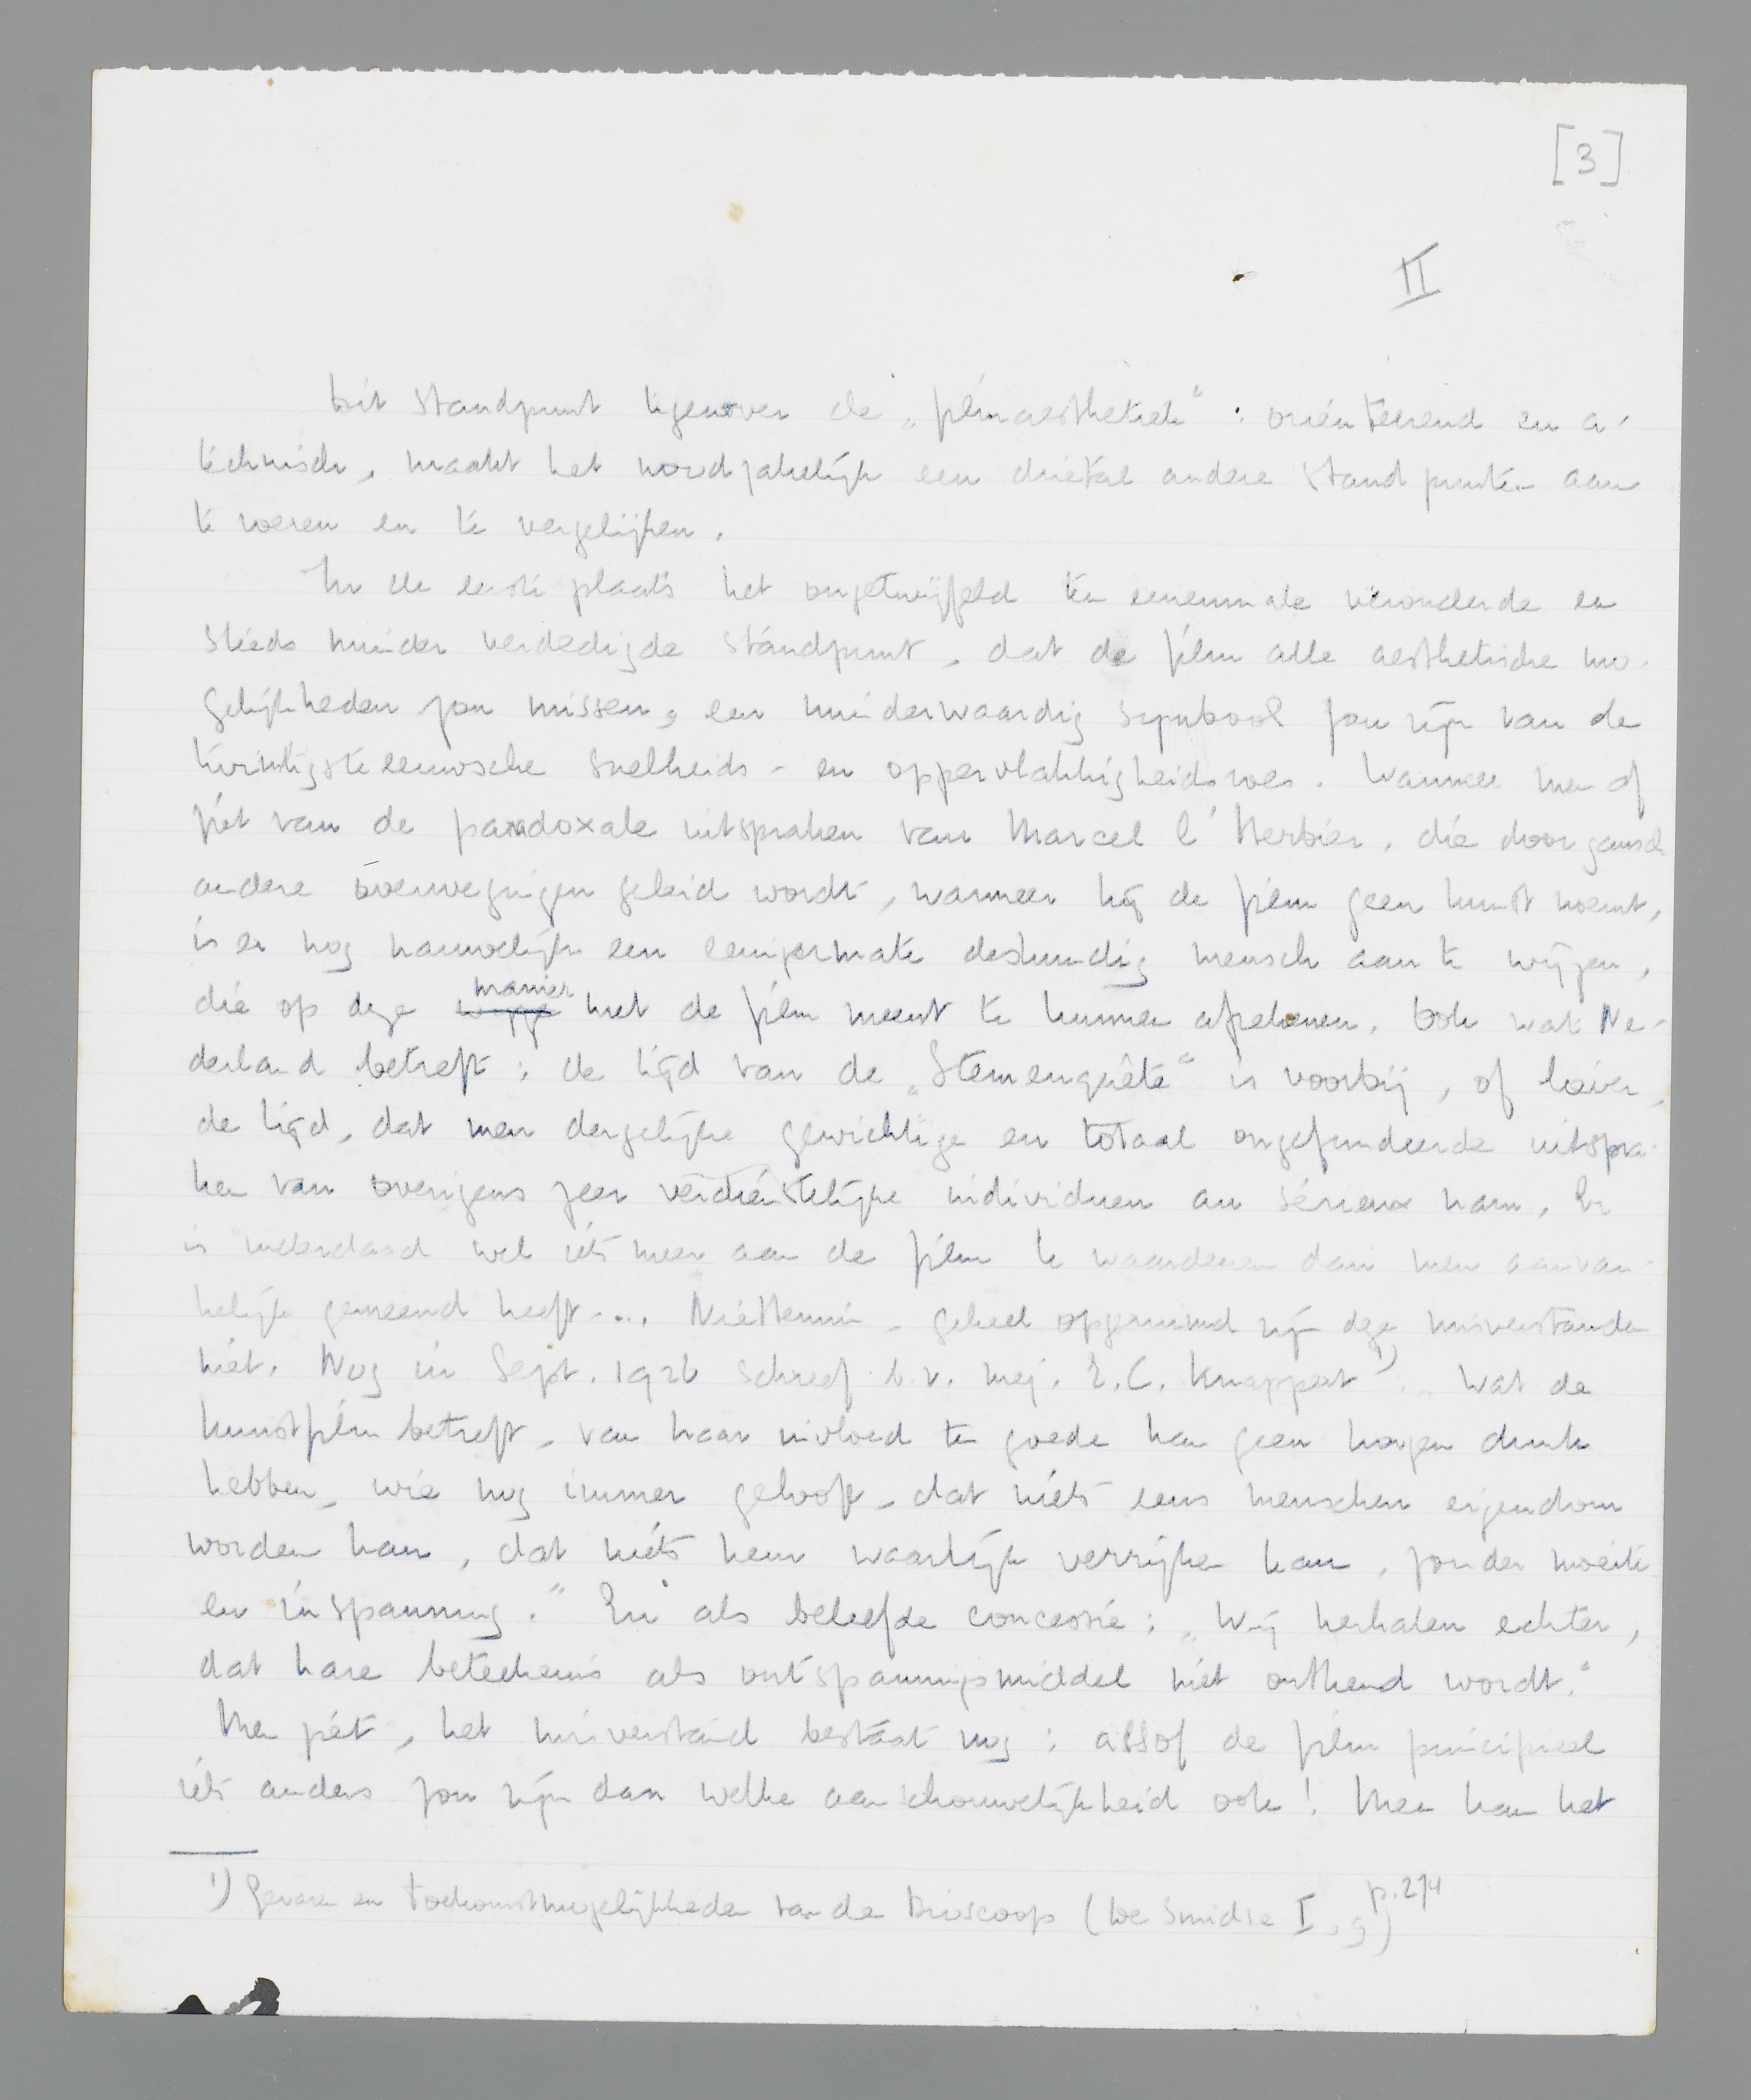 [3]
II
Dit standpunt tegenover de „filmaesthetiek“: oriënteerend en a-
technisch, maakt het noodzakelijk een drietal andere standpunten aan
te roeren en te vergelijken.
In de eerste plaats het ongetwijfeld ten eenenmale verouderde en
steeds minder verdedigde standpunt, dat de film alle aesthetische mo-
gelijkheden zou missen, een minderwaardig symbool zou zijn van de
twintigste eeuwsche snelheids- en oppervlakkigheidsroes. Wanneer men af
ziet van de paradoxale uitspraken van Marcel l'Herbier, die door gansch
andere overwegingen geleid wordt, wanneer hij de film geen kunst noemt,
is er nog nauwelijks een eenigermate deskundig mensch aan te wijzen,
die op deze manier met de film meent te kunnen afrekenen. Ook wat Ne-
derland betreft: de tijd van de „Stemenquête“ is voorbij, of liever,
de tijd, dat men dergelijke gewichtige en totaal ongefundeerde uitspra-
ken van overigens zeer verdienstelijke individuen au sérieux nam. Er
is inderdaad wel iets meer aan de film te waardeeren dan men aanvan-
kelijk gemeend heeft.... Niettemin, geheel opgeruimd zijn deze misverstanden
niet. Nog in Sept. 1926 schreef b.v. mej. E.C. Knappert 1): „Wat de
kunstfilm betreft, van haar invloed ten goede kan geen hoogen dunk
hebben, wie nog immer gelooft, dat niets eens menschen eigendom
worden kan, dat niets hem waarlijk verrijken kan, zonder moeite
en inspanning.“ En als beleefde concessie: „Wij herhalen echter,
dat hare beteekenis als ontspanningsmiddel niet ontkend wordt.“
Men ziet, het misverstand bestaat nog: alsof de film principieel
iets anders zou zijn dan welke aanschouwelijkheid ook! Men kan het
1) Gevaren en toekomstmogelijkheden van de Bioscoop (De Smidse I, 9) p. 274